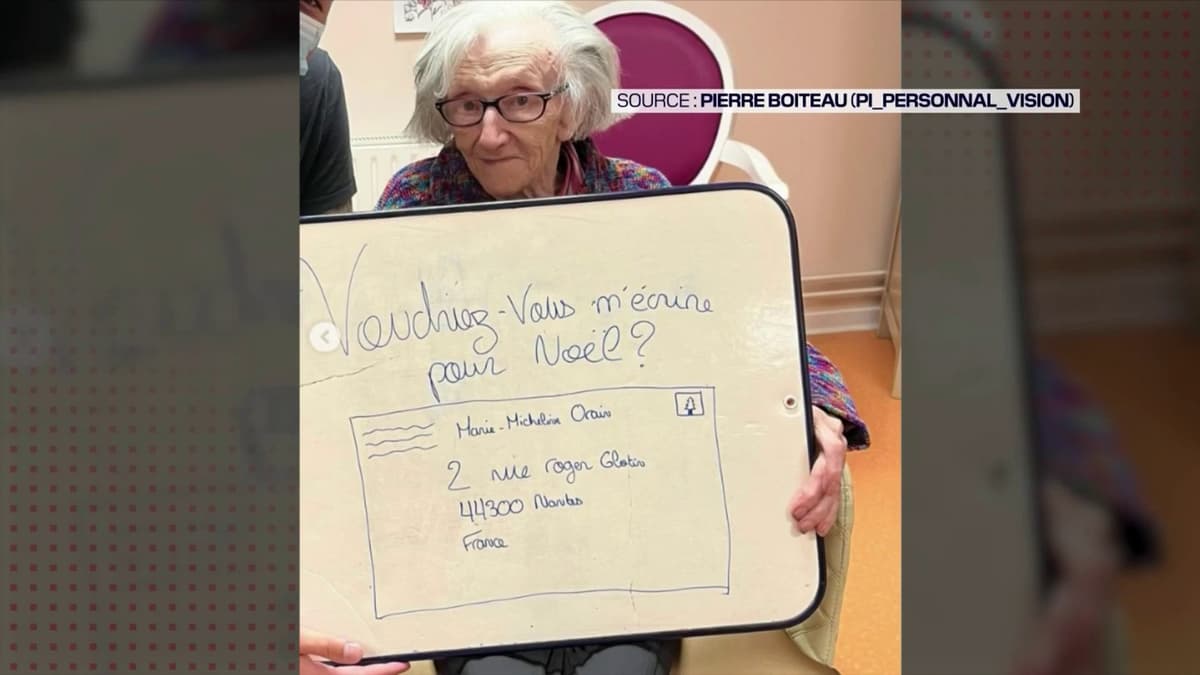 SOURCE : PIERRE BOITEAU (PI_PERSONNAL_VISION)
Voudriez-Vous m'écrire
pour Noël ?
Marie-Micheline Orain
2 rue roger Glotin
44300 Nantes
France